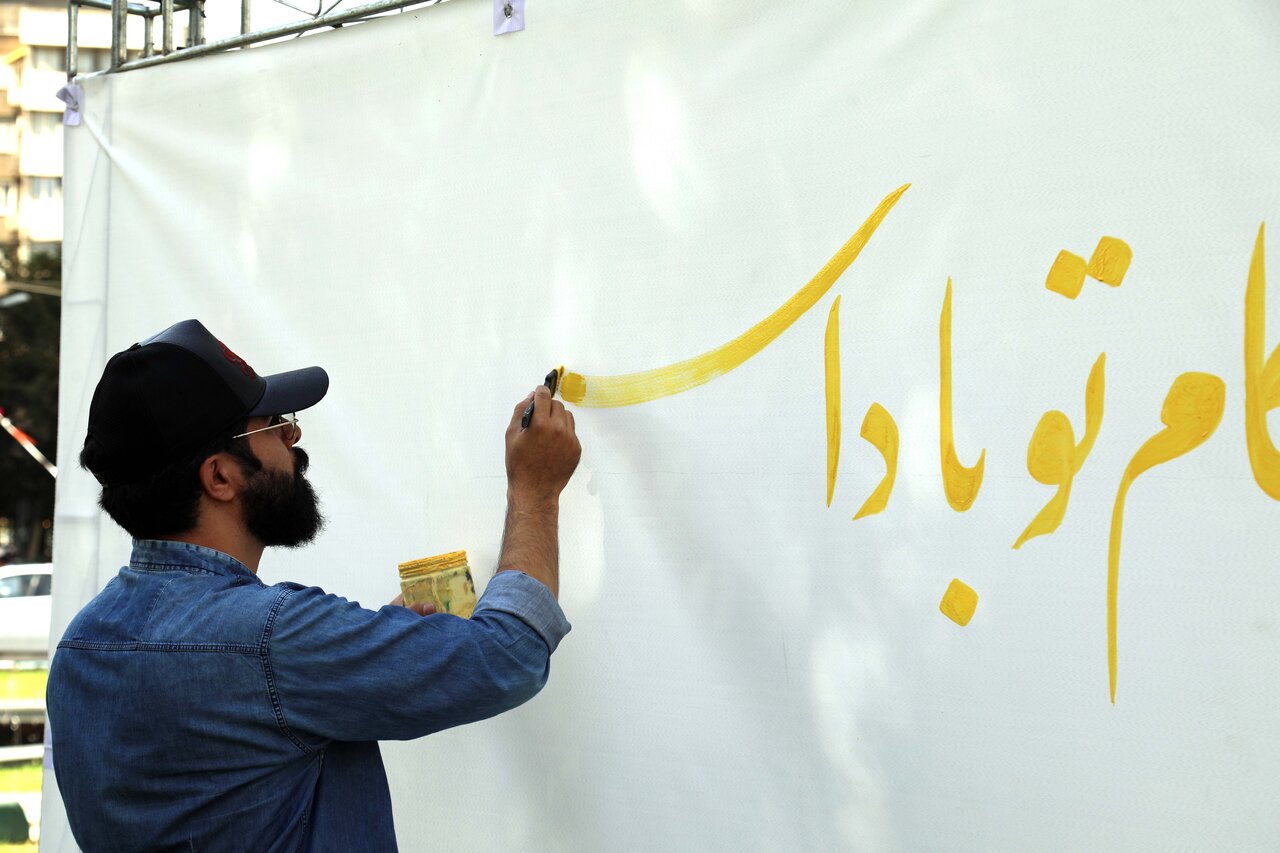 کام تو بادا